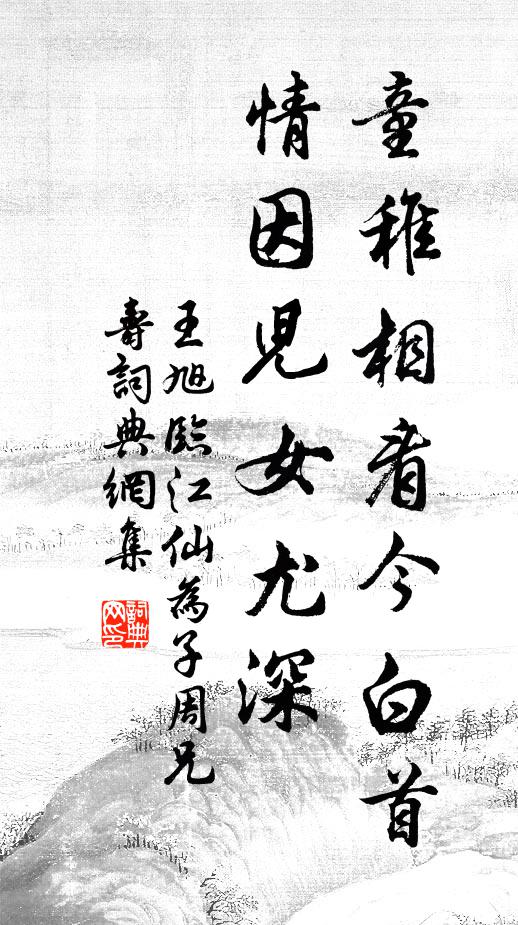 童稚相看今白首
情因兒女尤深
王旭臨江仙為子周兄
壽詞典網集
詞典網印